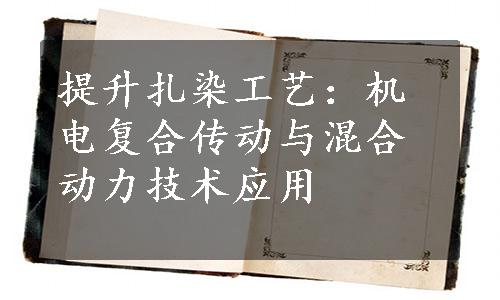 提升扎染工艺：机
电复合传动与混合
动力技术应用